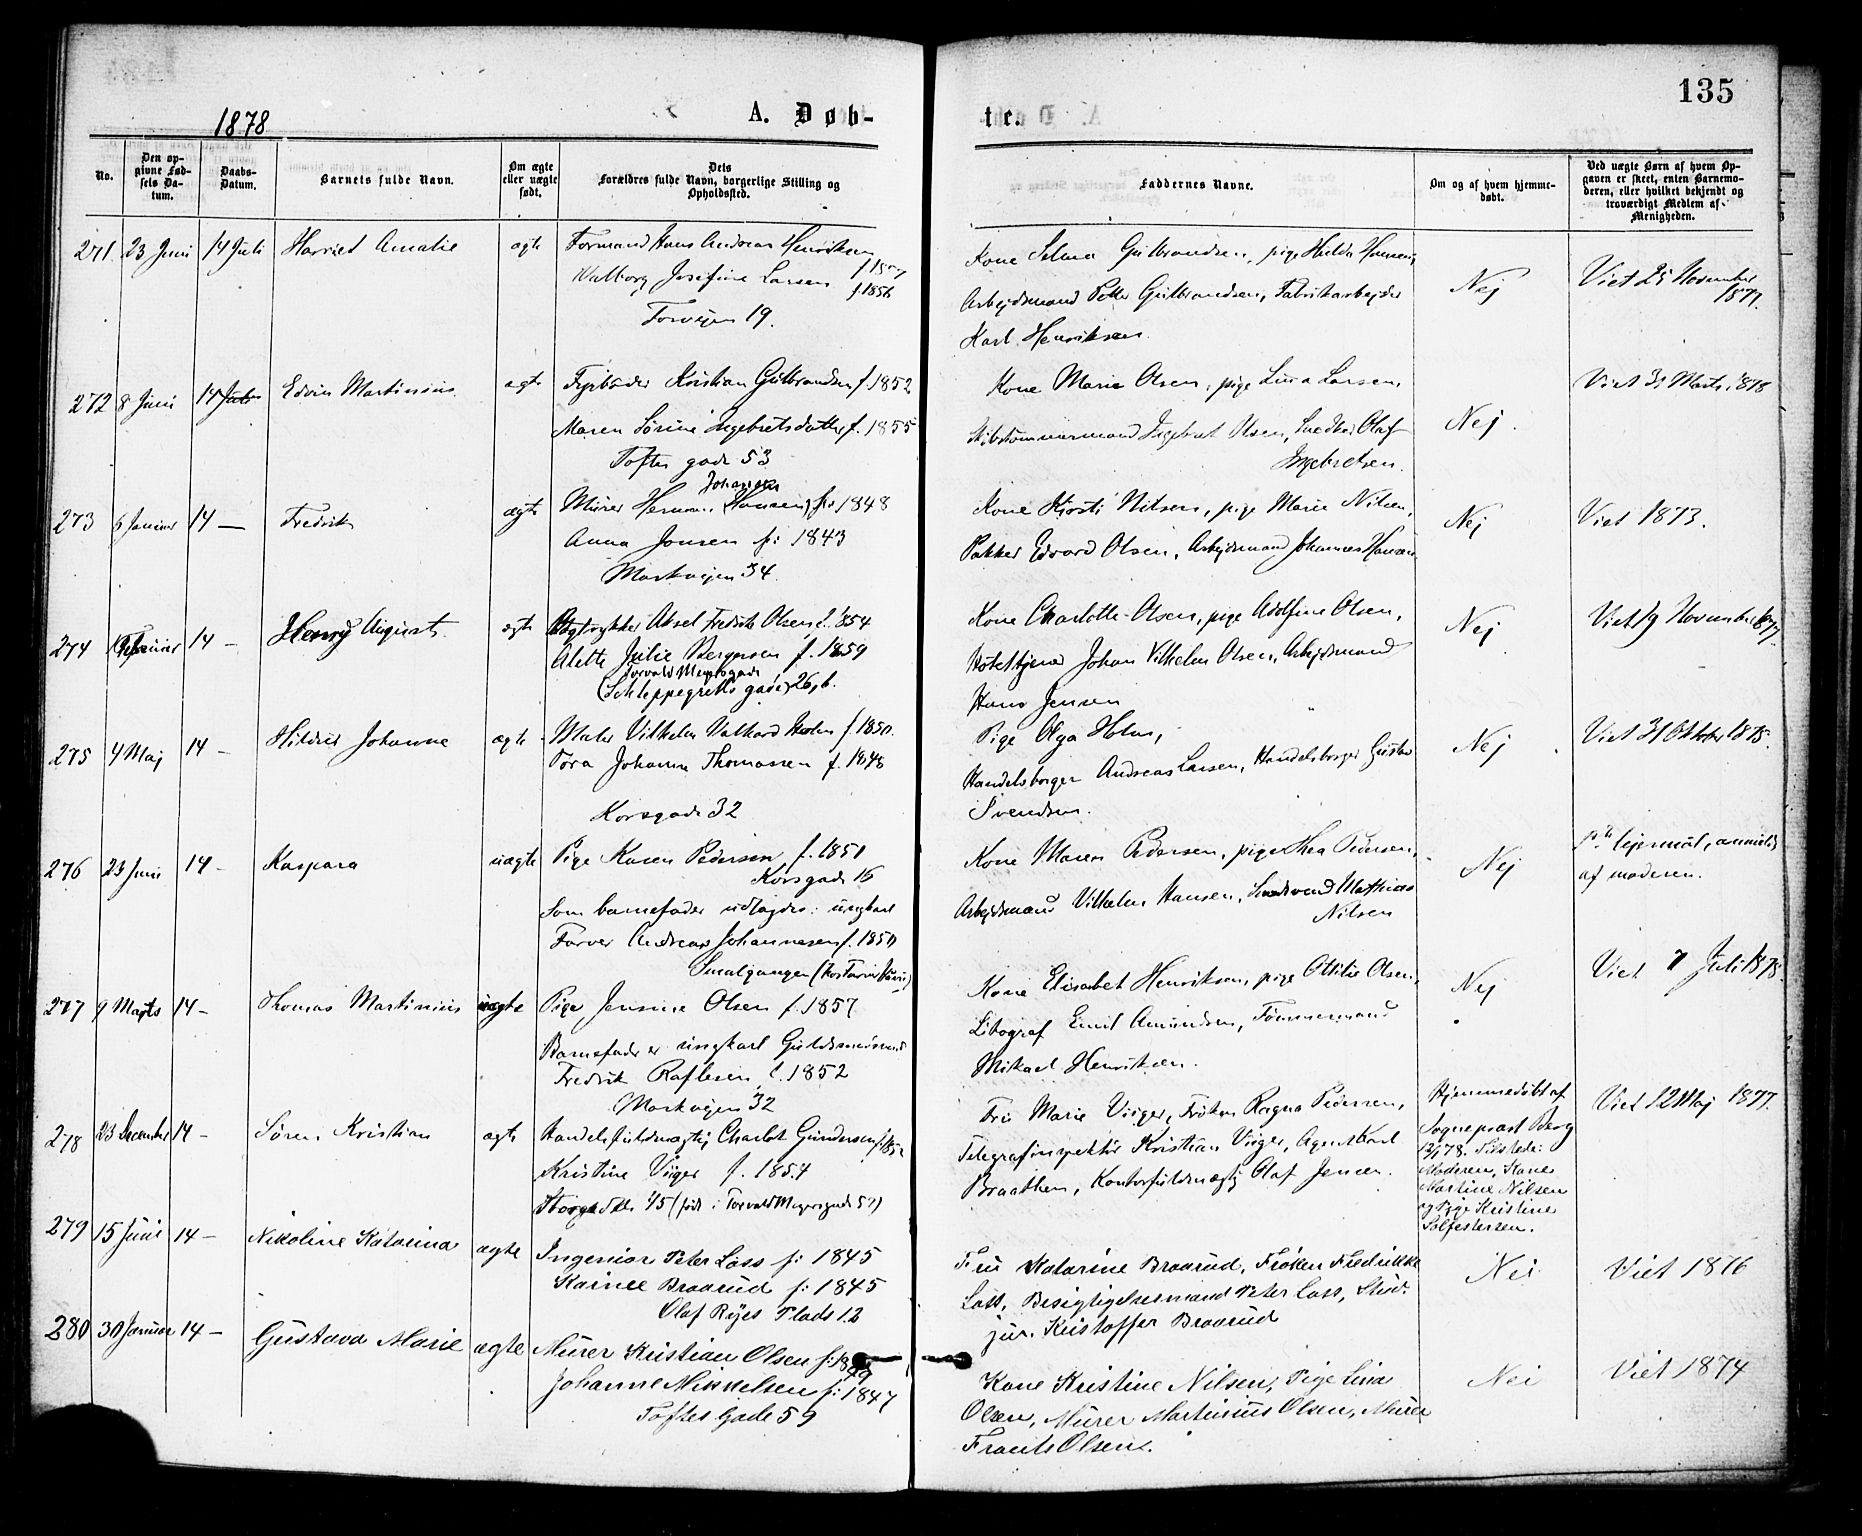 135
1878
A. Døb-
te.
No.
Den op-
givne Fød-
sels Da-
tum.
Daabs-
Datum.
Barnets fulde Navn.
Om ægte
eller uægte
født.
Dets
Forældres fulde Navn, borgerlige Stilling og
Opholdssted.
Faddernes Navne.
Om og af hvem hjemme-
døbt.
Ved uægte Børn af hvem Op-
gaven er skeet, enten Barnemo-
deren, eller hvilket bekjendt og
troværdigt Medlem af
Menigheden.
271. 23 Juni 14 Juli Harriet Amalie ægte Formand Hans Andreas Henriksen
Valborg Josefine Larsen f. 1856
Torvejen 19.
Kone Selma Gulbrandsen, pige Hulda Hansen,
Arbejdsmand Petter Gulbrandsen, Fabrikarbejder
Karl Henriksen.
Nej
Viet 25 November
1877.
272 8 Juni 14 Juli Edvin Martinius ægte Kristian Gulbrandsen f. 1852
Maren Sørine Ingebretsdatter f. 1855
Toftes gade 53
Kone Marie Olsen, pige Lina Larsen,
Skibstømmermand Ingebret Olsen, Snedker Olaf
Ingebretsen.
Nej.
Viet 31 Marts 1878
273 6 Januar 14 — Fredrik ægte Murer Herman (Hansen) Johansen f: 1848
Anna Jonsen f: 1843
Markvejen 34.
Kone Kjersti Nilsen, pige Marie Nilsen,
Pakker Edvard Olsen, Arbejdsmand Johannes Hansen
Nej
Viet 1873.
274 Februar 14 — Henry August ægte Bogtrykker Aksel Fredrik Olsen f. 1854
Alette Julie Bergersen f. 1859
Torvald Meyersgade
(Schleppegrells gade) 26, b.
Kone Charlotte Olsen, pige Adolfine Olsen,
Hoteltjener Johan Vilhelm Olsen, Arbejdsmand
Hans Jensen
Nej
Viet 19 November 1877
275 4 Maj 14 — Hildur Johanne ægte Maler Vilhelm Valkard Holm f. 1850.
Tora Johanne Thomassen f. 1848
Korsgade 32
Pige Olga Holm,
Handelsborger Andreas Larsen, Handelsborger Gustav
Svendsen.
Nej
Viet 31 Oktober 1875.
276 23 Juni 14 — Kaspara uægte Pige Karen Pedersen f. 1851
Korsgade 16
Som barnefader udlagdes: ungkarl
Farver Andreas Johannesen f. 1850
Smalgangen
Kone Maren Pedersen, pige Thea Pedersen,
Arbejdsmand Vilhelm Hansen, Mathias
Nilsen
Nej
lejermål, anmeldt
af moderen.
277 9 Marts 14 — Thomas Martinius uægte Pige Jensine Olsen f. 1857
Barnefader ungkarl Guldsmedsvend
Fredrik Raflesen f. 1852
Markvejen 32
Kone Elisabet Henriksen, pige Ottilie Olsen,
Litograf Emil Amundsen, Tømmermand
Mikael Henriksen.
Nej
Viet 7 Juli 1878
278 23 December 14 — Søren Kristian ægte Handelsfuldmægtig Charles Gundersen
Kristine Viiger f. 1854
Storgaden 45 (født i Torvald Meyersgade 52)
Fru Marie Viiger, Frøken Ragna Pedersen,
Telegrafinspektør Kristian Viiger, Agent Karl
Braathen, Kontorfuldmægtig Olaf Jensen.
Hjemmedøbt af
Sogneprest Berg
12/1 78. Tilstede:
Moderen, Kone
Martine Nilsen
og Pige Kristine
Solfestersen.
Viet 12 Maj 1877.
279 15 Juni 14 — Nikoline Katarina ægte Ingeniør Peter Lass f: 1845
Kainee Braarud f: 1845
Olaf Ryes Plads 12
Fru Katarine Braarud, Frøken Fredrikke
Lass, Besigtigelsesmand Peter Lass, Stud.
jur. Kristoffer Braarud
Nei
Viet 1876
280 30 Januar 14 — Gustava Marie ægte Murer Kristian Olsen f: 1849
Johanne Mikkelsen f: 1847
Toftes Gade 59
Kone Kristine Nilsen, Pige Lina
Olsen, Murer Martinius Olsen, Murer
Frants Olsen.
Nei
Viet 1874